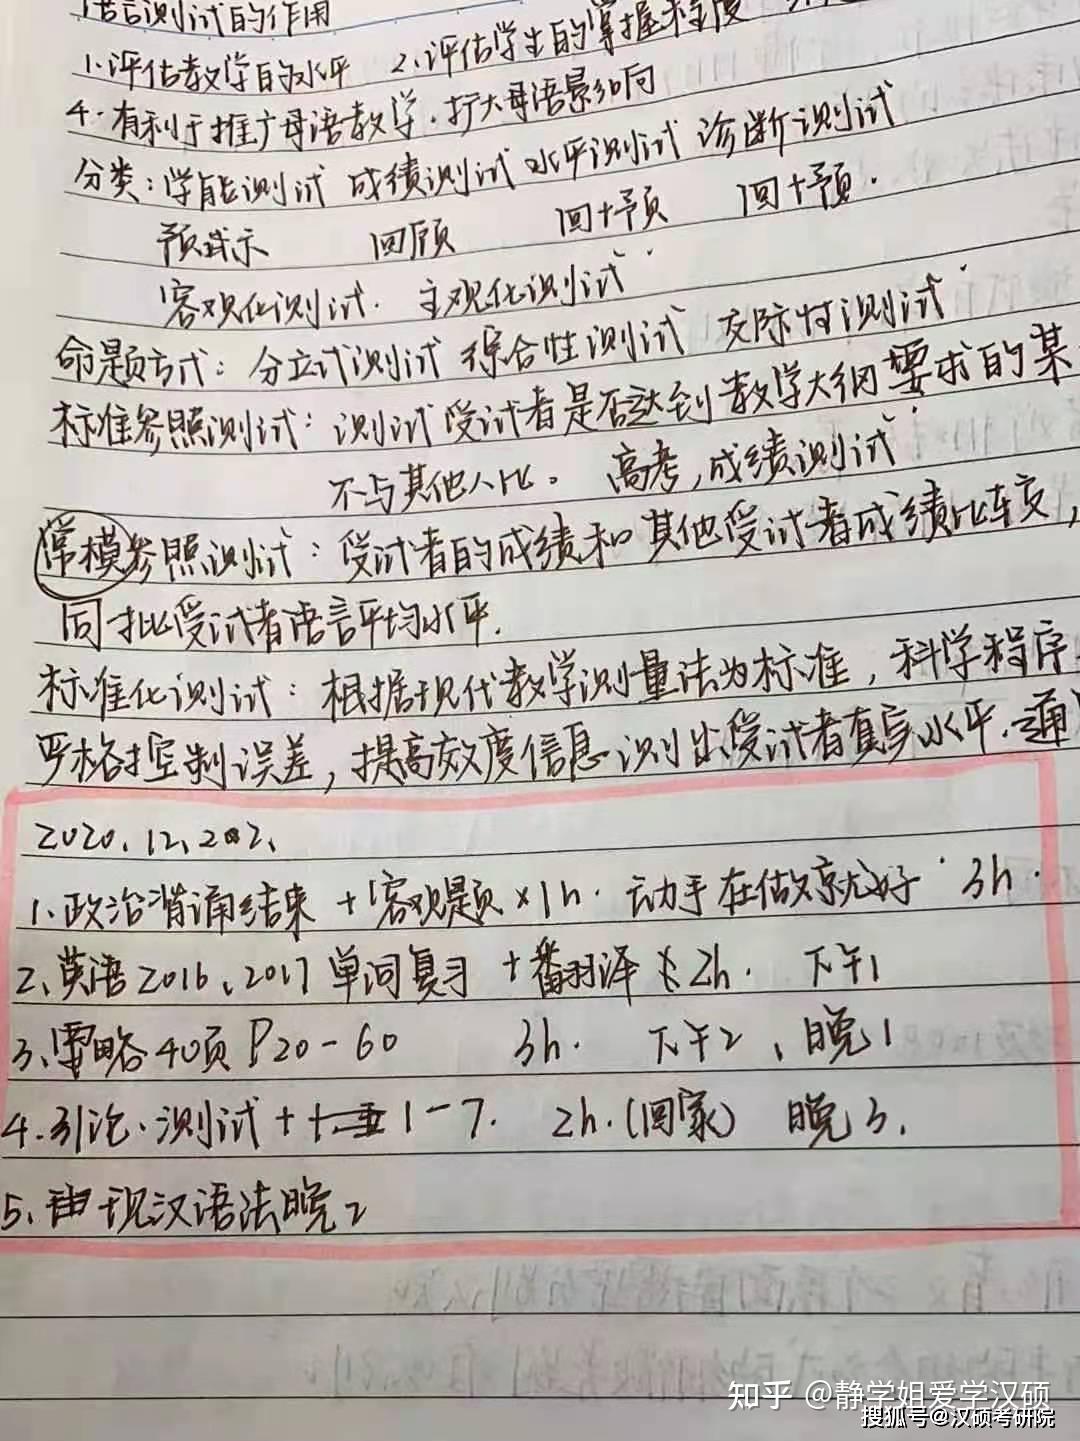 语言测试的作用
1.评估教学的水平 2.评估学生的掌握程度
4.有利于推广母语教学.扩大母语影响
分类:学能测试 成绩测试 水平测试 诊断测试
预示 回顾 回+预 回+预.
客观化测试. 主观化测试.
命题方式:分立式测试 综合性测试 交际性测试.
标准参照测试:测试受试者是否达到教学大纲要求的某
不与其他人比。 高考,成绩测试.
常模参照测试:受试者的成绩和其他受试者成绩比较,
同批受试者语言平均水平.
标准化测试:根据现代教学测量法为标准,科学程序
严格控制误差,提高效度信息测出受试者真实水平.通
2020.12.202.
1.政治背诵结束+客观题×1h.动手在做就好. 3h.
2.英语2016、2017单词复习+翻译 2h. 下午1
3.要略40页P20-60 3h. 下午2、晚1
4.引论.测试+ 1-7. 2h.(回家) 晚3.
5. 现汉语法晚2
知乎 @静学姐爱学汉硕
搜狐号@汉硕考研院